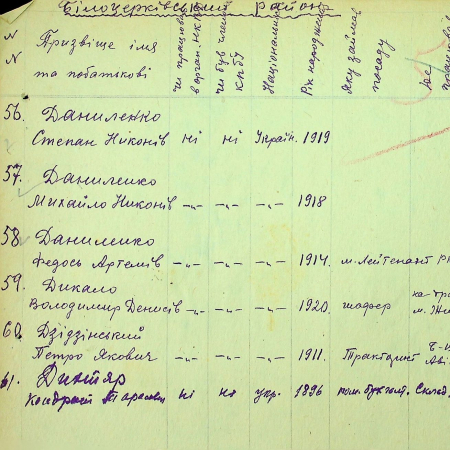 Білоцерківський район
N N Призвіще імя та побаткові
чи працював в орган. НКВ
чи був член. КПбУ
Національн
Рік народжен
Яку займав посаду
Де працював
56. Даниленко
Степан Ніконів ні ні Україн. 1919
57. Даниленко
Михайло Никонів -„- -„- -„- 1918
58. Даниленко
Федось Артемів -„- -„- -„- 1914. м. Лейтенант
59. Дикало
Володимир Денисів -„- -„- -„- 1920. шофер
60. Дзідзінський
Петро Якович -„- -„- -„- 1911. Тракторист
61. Дихтяр
Кондрат Тарасович ні ні укр. 1896 пом. бухгалт. Склад.